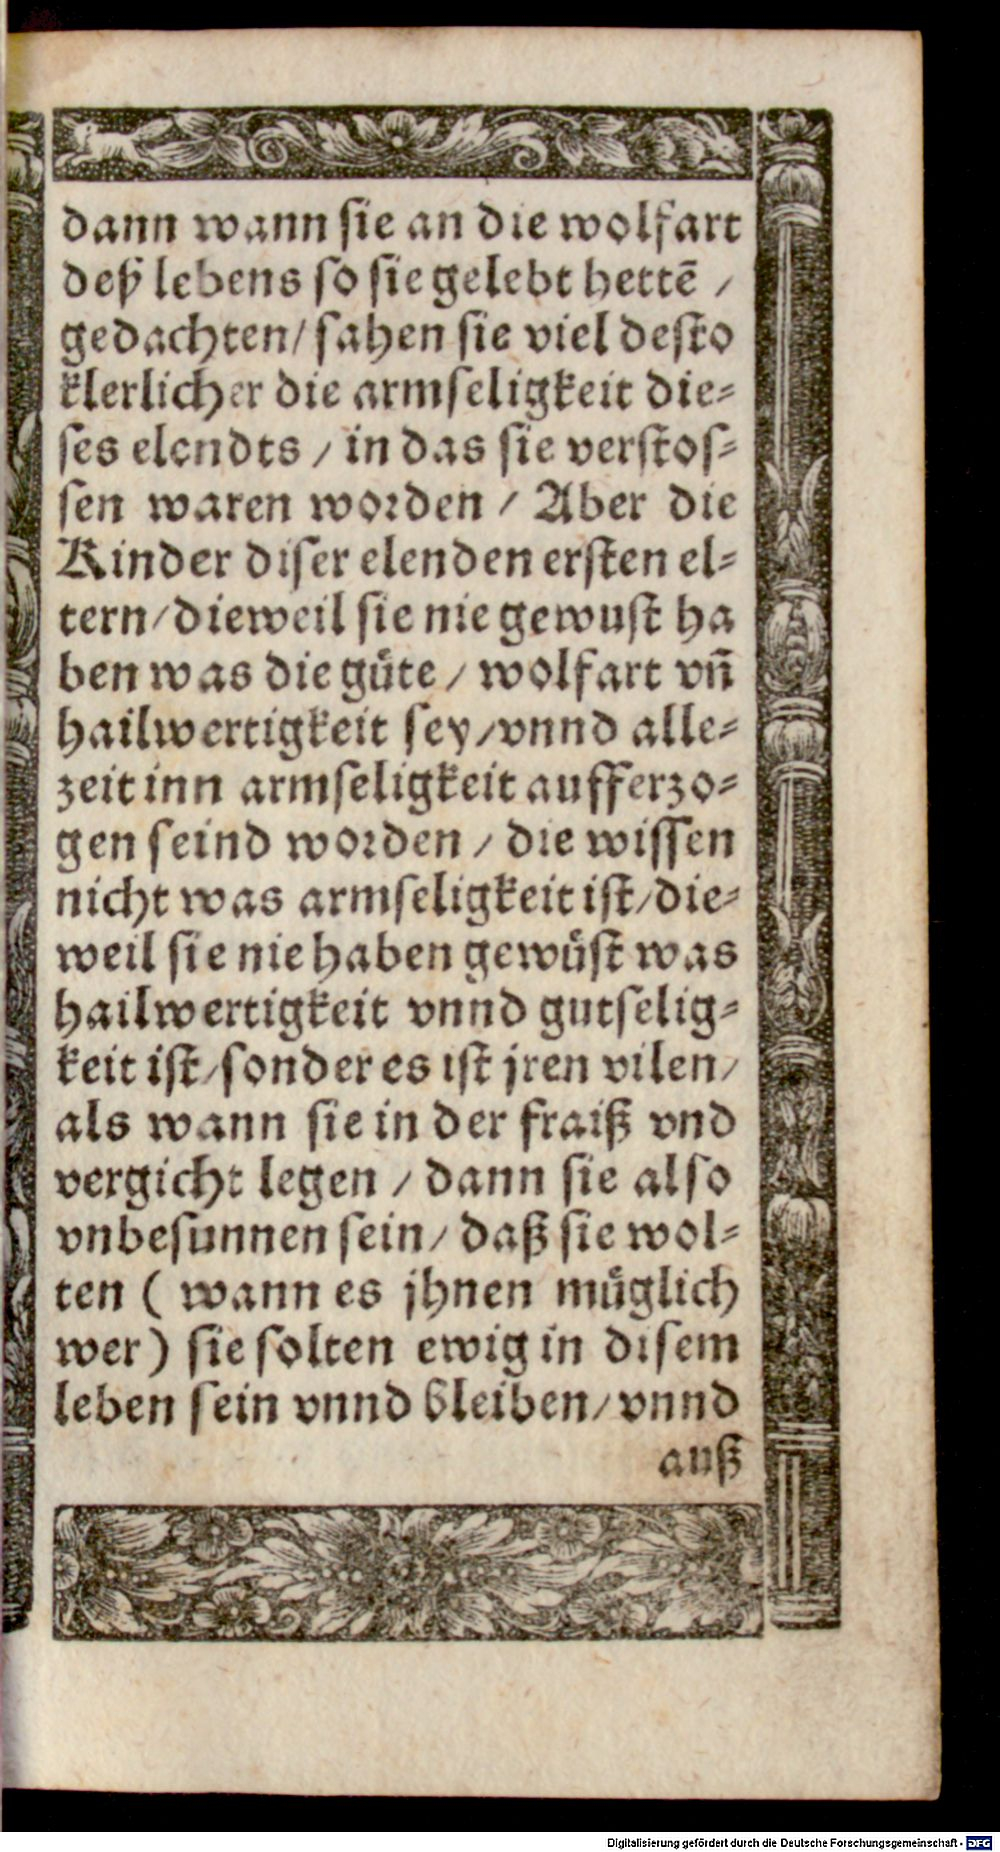 dann wann sie an die wolfart
deß lebens so sie gelebt hettē /
gedachten/ sahen sie viel desto
klerlicher die armseligkeit die⸗
ses elendts / in das sie verstos⸗
sen waren worden / Aber die
Kinder diser elenden ersten el⸗
tern/dieweil sie nie gewust ha
ben was die guͤte / wolfart vn̄
hailwertigkeit sey/vnnd alle⸗
zeit inn armseligkeit aufferzo⸗
gen seind worden / die wissen
nicht was armseligkeit ist/die⸗
weil sie nie haben gewuͤst was
hailwertigkeit vnnd gutselig⸗
keit ist/sonder es ist jren vilen/
als wann sie in der fraiß vnd
vergicht legen / dann sie also
vnbesunnen sein/ daß sie wol⸗
ten ( wann es jhnen muͤglich
wer) sie solten ewig in disem
leben sein vnnd bleiben/vnnd
auß
Digitalisierung gefördert durch die Deutsche Forschungsgemeinschaft - DFG